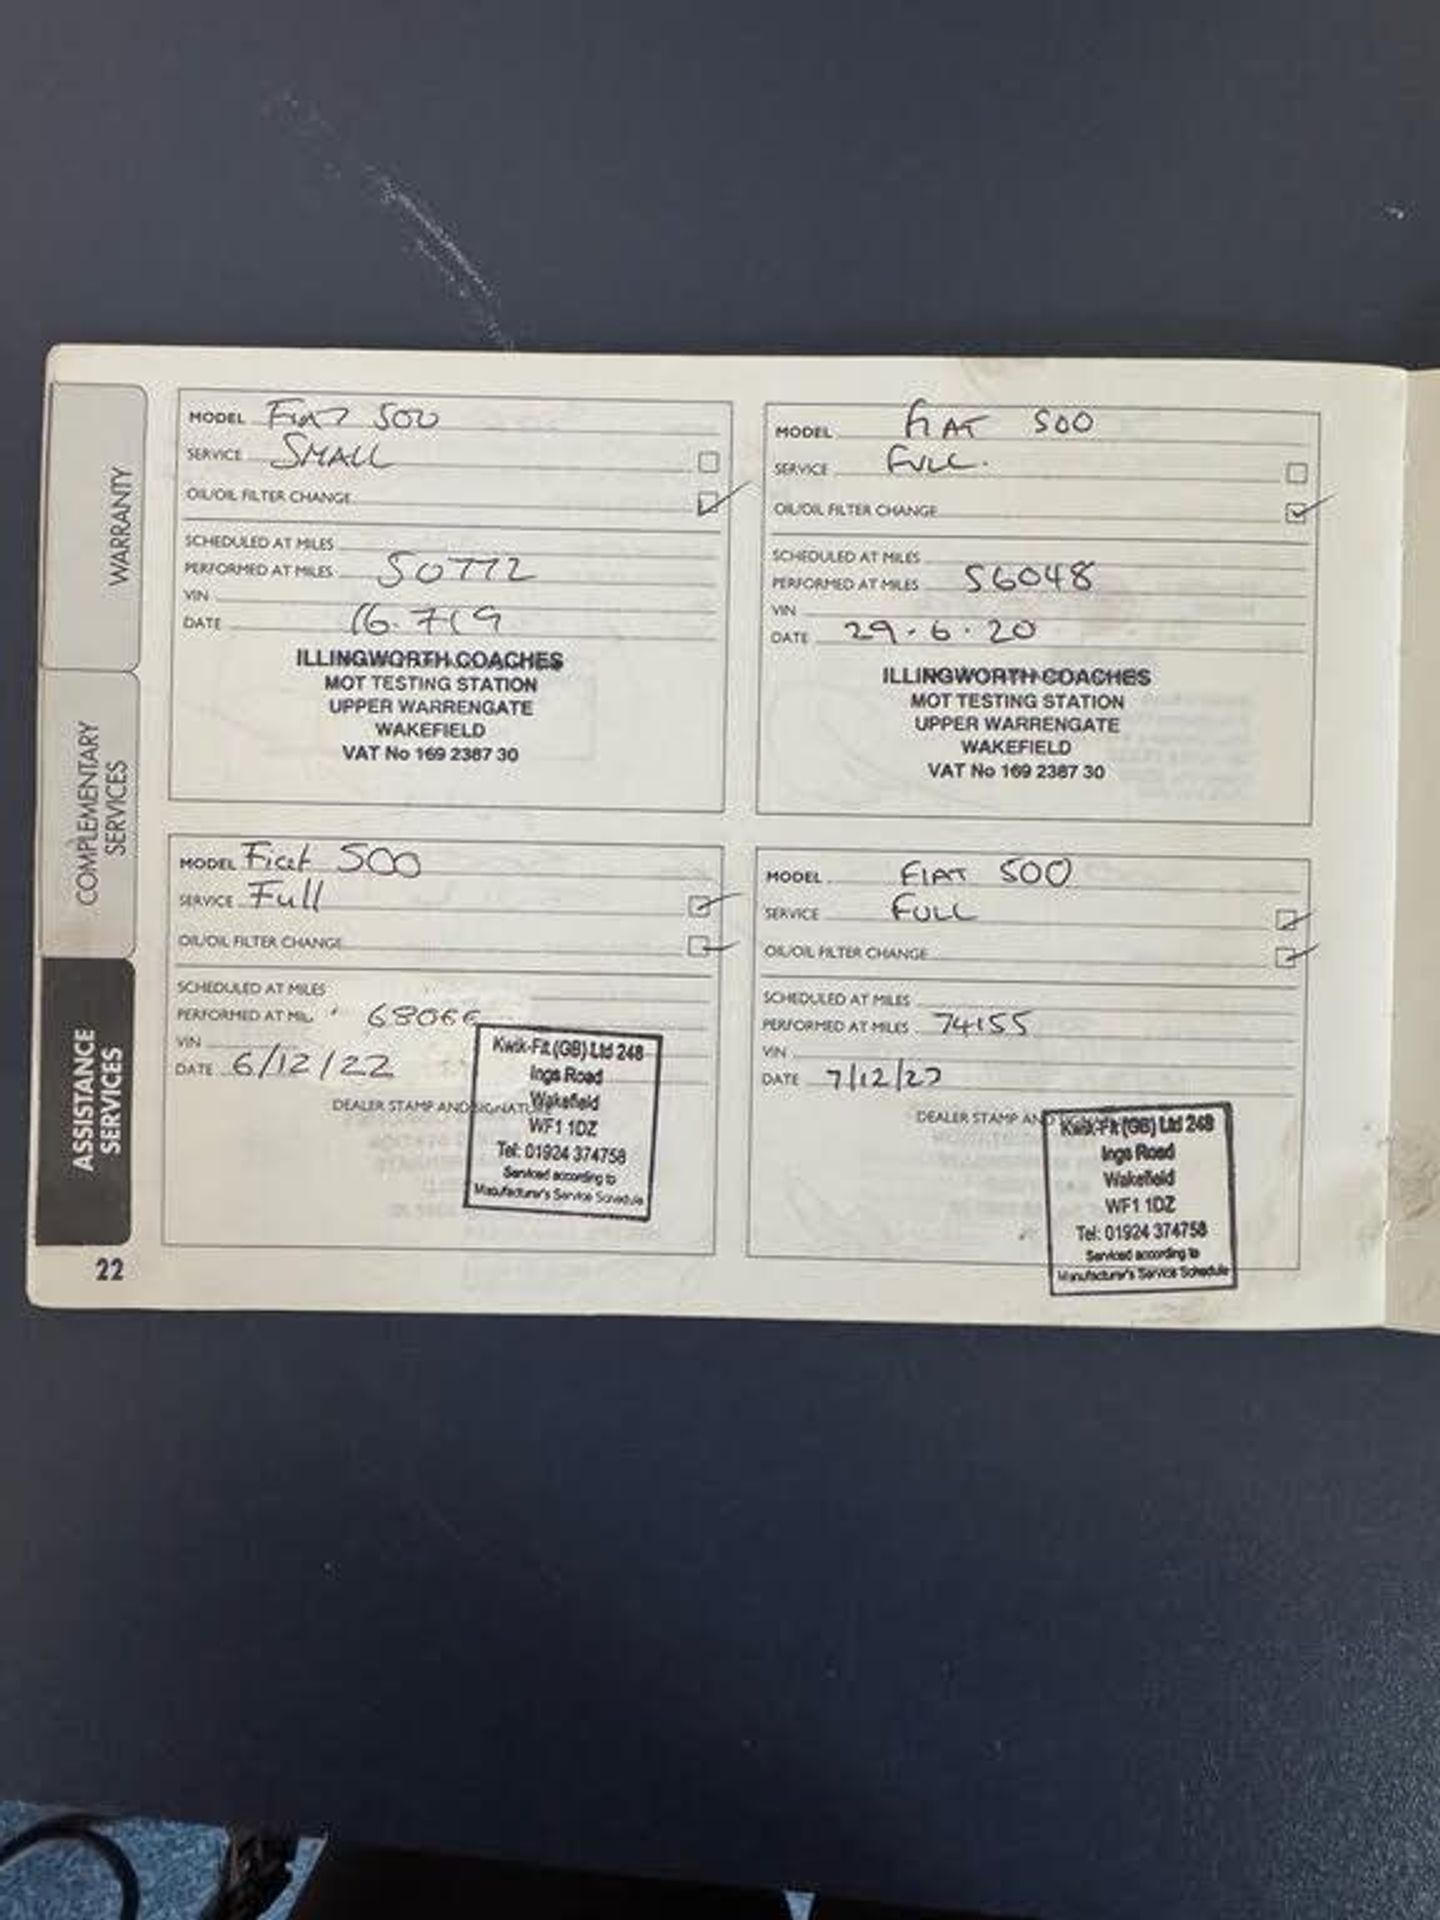 WARRANTY
COMPLEMENTARY
SERVICES
ASSISTANCE
SERVICES
22
MODEL Fiat 500
SERVICE SMALL
OIL/OIL FILTER CHANGE
SCHEDULED AT MILES
PERFORMED AT MILES 50772
VIN
DATE 16.719
ILLINGWORTH COACHES
MOT TESTING STATION
UPPER WARRENGATE
WAKEFIELD
VAT No 169 2387 30
MODEL FIAT 500
SERVICE FULL.
OIL/OIL FILTER CHANGE
SCHEDULED AT MILES
PERFORMED AT MILES 56048
VIN
DATE 29.6.20
ILLINGWORTH COACHES
MOT TESTING STATION
UPPER WARRENGATE
WAKEFIELD
VAT No 169 2387 30
MODEL Fiat 500
SERVICE Full
OIL/OIL FILTER CHANGE
SCHEDULED AT MILES
PERFORMED AT MIL
VIN
DATE 6/12/22
DEALER STAMP AND SIGNATU
Kwik-Fit (GB) Ltd 248
Ings Road
Wakefield
WF1 1DZ
Tel: 01924 374758
Serviced according to
Manufacturer's Service Schedule
MODEL FIAT 500
SERVICE FULL
OIL/OIL FILTER CHANGE
SCHEDULED AT MILES
PERFORMED AT MILES 74155
VIN
DATE 7/12/23
DEALER STAMP AND
Kwik-Fit (GB) Ltd 248
Ings Road
Wakefield
WF1 1DZ
Tel: 01924 374758
Serviced according to
Manufacturer's Service Schedule